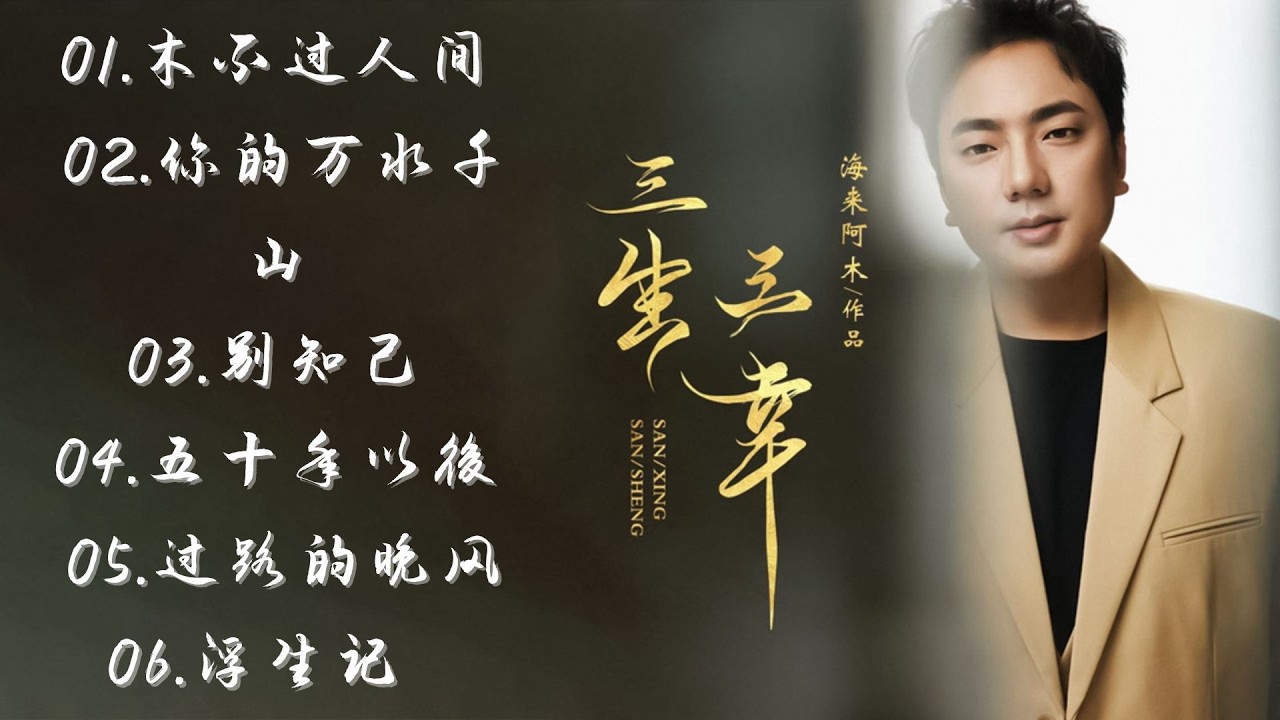 01.木不过人间
02.你的万水千
山
03.别知己
04.五十年以後
05.过路的晚风
06.浮生记
三生
三幸
SAN/XING
SAN/SHENG
海来阿木/作品